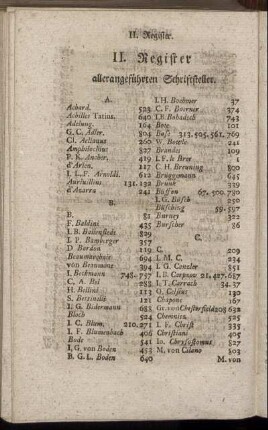 II. Register.
II. Register
aller angeführten Schriftsteller.
A.
Achard. 528
Achilles Tatius. 640
Adelung. 164
G. C. Adler. 804
Cl. Aelianus 260
Amphilochius 827
P. K. Ancher. 419
d'Arien. 117
I. L. F. Arnoldi. 612
Aurivillius 131. 132
d'Azarra 241
B.
B. 51
F. Baldini 435
I. B. Ballenstedt 829
I. P. Bamberger 357
D. Bordon
Beaumarchais 694
von Beroldingen
I. Beckmann 748. 757
C. A. Bel 288
H. Bellini 113
S. Berzinelli 211
I. G. Bidermann 688
Bloch 524
I. C. Blum. 210. 271
I. F. Blumenbach 406
Bode 541
I. G. von Boden 453
B. G. L. Boden 640
I. H. Boehmer 37
C. F. Boerner 374
I. B. Bohadsch 743
Bote 101
Bose 313. 505. 561. 769
W. Bowle 241
Brandes 109
I. F. le Bret 1
C. H. Breuning 800
Bruggemann 645
Brunn 339
Büffon 67. 500. 780
I. G. Büsch 250
Büsching 59. 597
Burney 322
Burscher 86
C.
C. 209
I. M. C. 234
I. G. Canzler 351
I. B. Carpzov 21. 427. 637
I. T. Carrach 34. 37
O. Celsius 130
Chapone 167
Gr. von Chesterfield 208. 632
Chemnitz 525
I. F. Christ 335
Christiani 405
Io. Chrysostomus 827
M. von Cilano 303
M. von